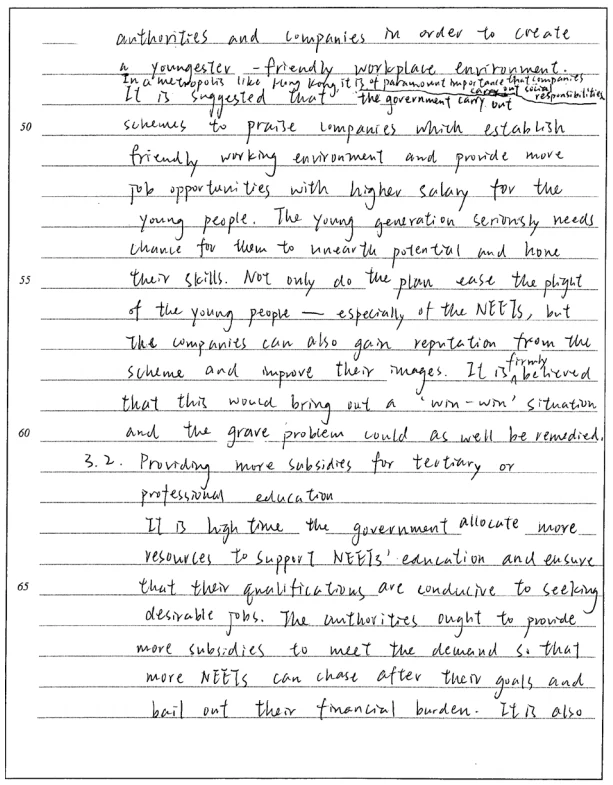 authorities and companies in order to create
a youngester -friendly workplace environment.
In a metropolis like Hong Kong, it is of paramount importance that companies
carry out social responsibilities
It is suggested that the government carry out
50 schemes to praise companies which establish
friendly working environment and provide more
job opportunities with higher salary for the
young people. The young generation seriously needs
chance for them to unearth potential and hone
55 their skills. Not only do the plan ease the plight
of the young people — especially of the NEETs, but
the companies can also gain reputation from the
scheme and improve their images. It is firmly believed
that this would bring out a 'win-win' situation
60 and the grave problem could as well be remedied.
3.2. Providing more subsidies for tertiary or
professional education
It is high time the government allocate more
resources to support NEETs' education and ensure
65 that their qualifications are conducive to seeking
desirable jobs. The authorities ought to provide
more subsidies to meet the demand so that
more NEETs can chase after their goals and
bail out their financial burden. It is also